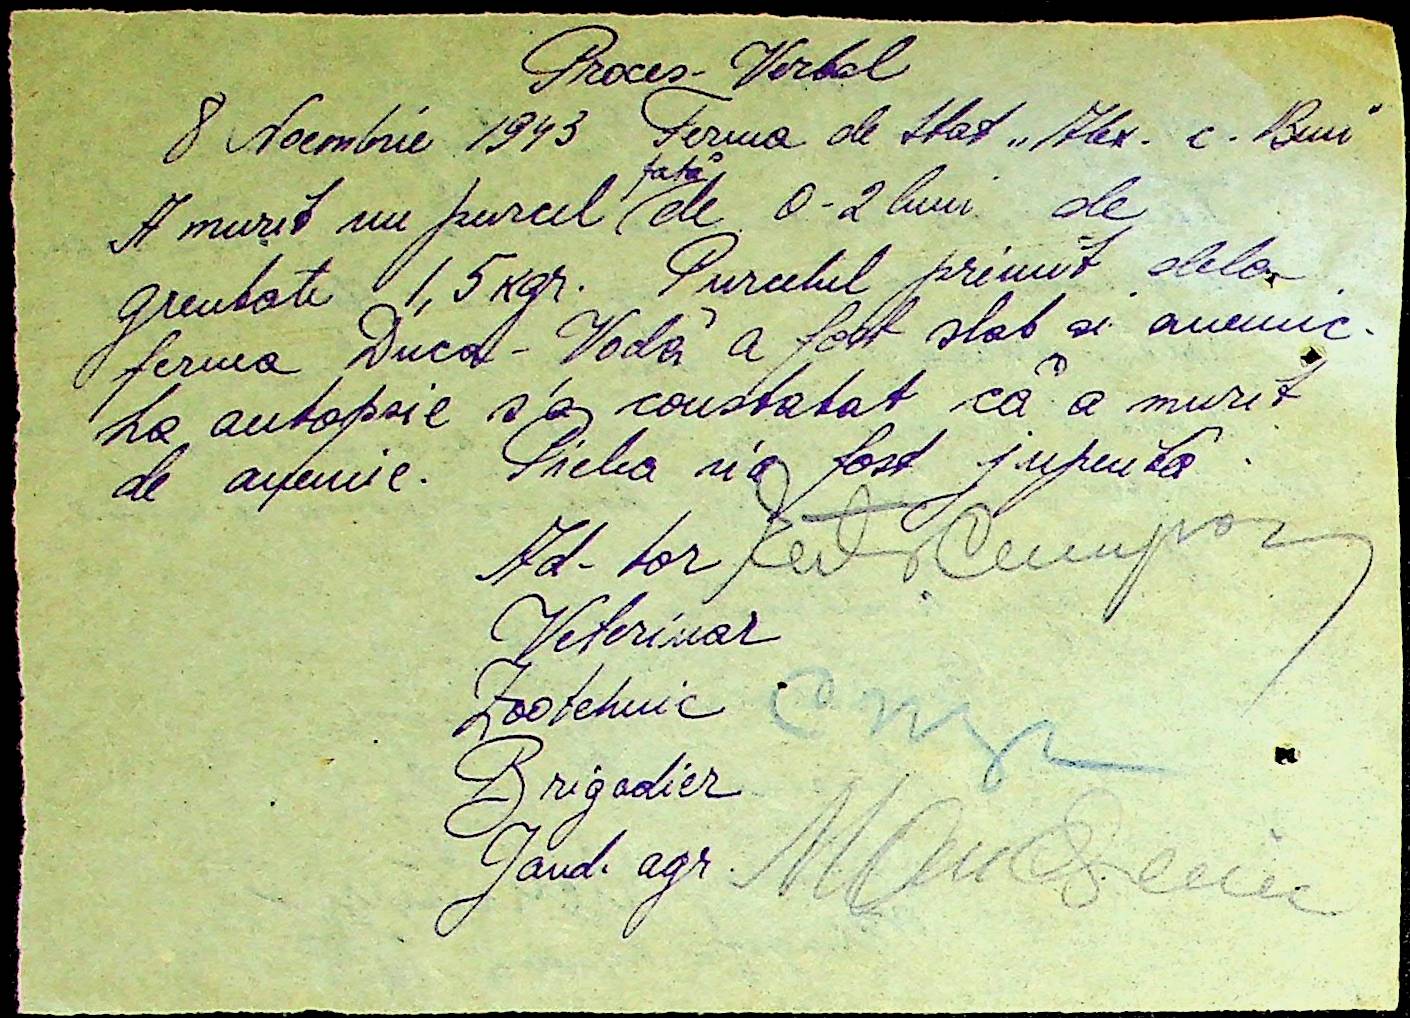 Proces-Verbal
8 Noembrie 1943 Ferma de Stat „Alex. c. Buni"
fată
A murit un purcel de 0-2 luni de
greutate 1,5 kgr. Purcelul primit dela
ferma Duca-Vodă a fost slab si anemic.
La autopsie s'a constatat că a murit
de anemie. Pielea n'a fost jupuită.
Ad-tor
Veterinar
Zootehnic
Brigadier
Jand. agr.